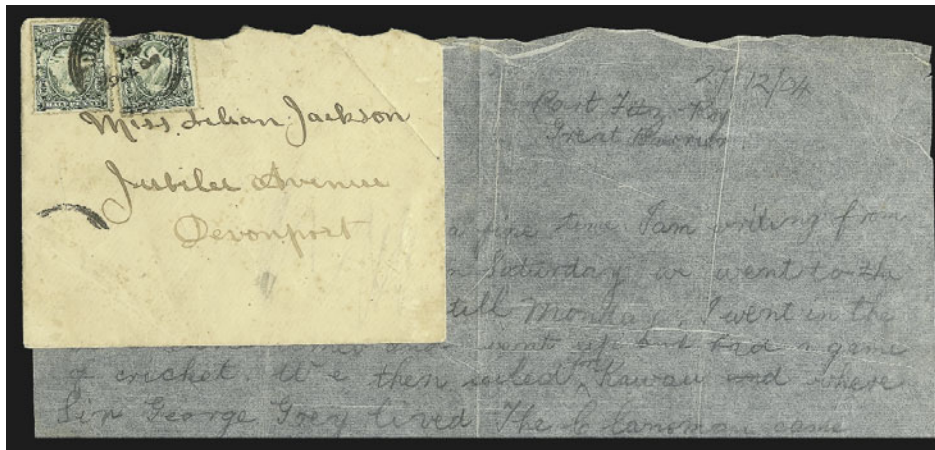 Miss Lilian Jackson
Jubilee Avenue
Devonport
27/12/04
Port Fitz-Roy
Great Barrier
a fine time I am writing from
Saturday we went to the
till Monday. I went in the
went up but had a game
of cricket. We then sailed Kawau and where
Sir George Grey lived The came